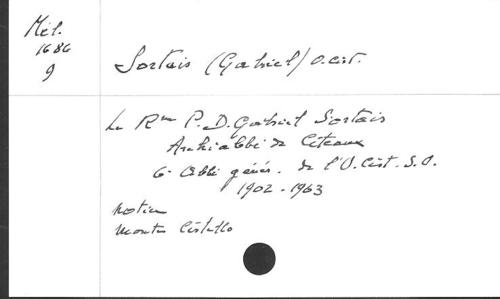 Mél.
1686
9
Sortais (Gabriel) O. cist.
Le Rme P. D. Gabriel Sortais
Archiabbé de Citeaux
6e Abbé génér. de l'O. Cist. S. O.
1902-1963
Notice
Monte Cistello